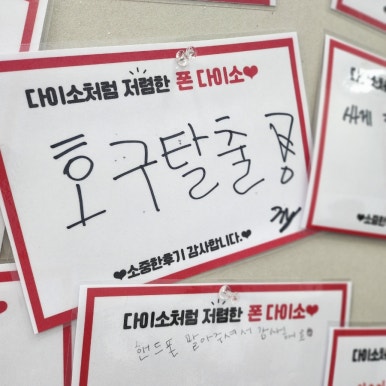 다이소처럼 저렴한 폰 다이소❤
호구탈출
❤소중한후기 감사합니다.❤
다이소처럼 저렴한 폰 다이소❤
핸드폰 팔아주셔서 감사해요
다이소처럼
다이소
싸게
❤소중